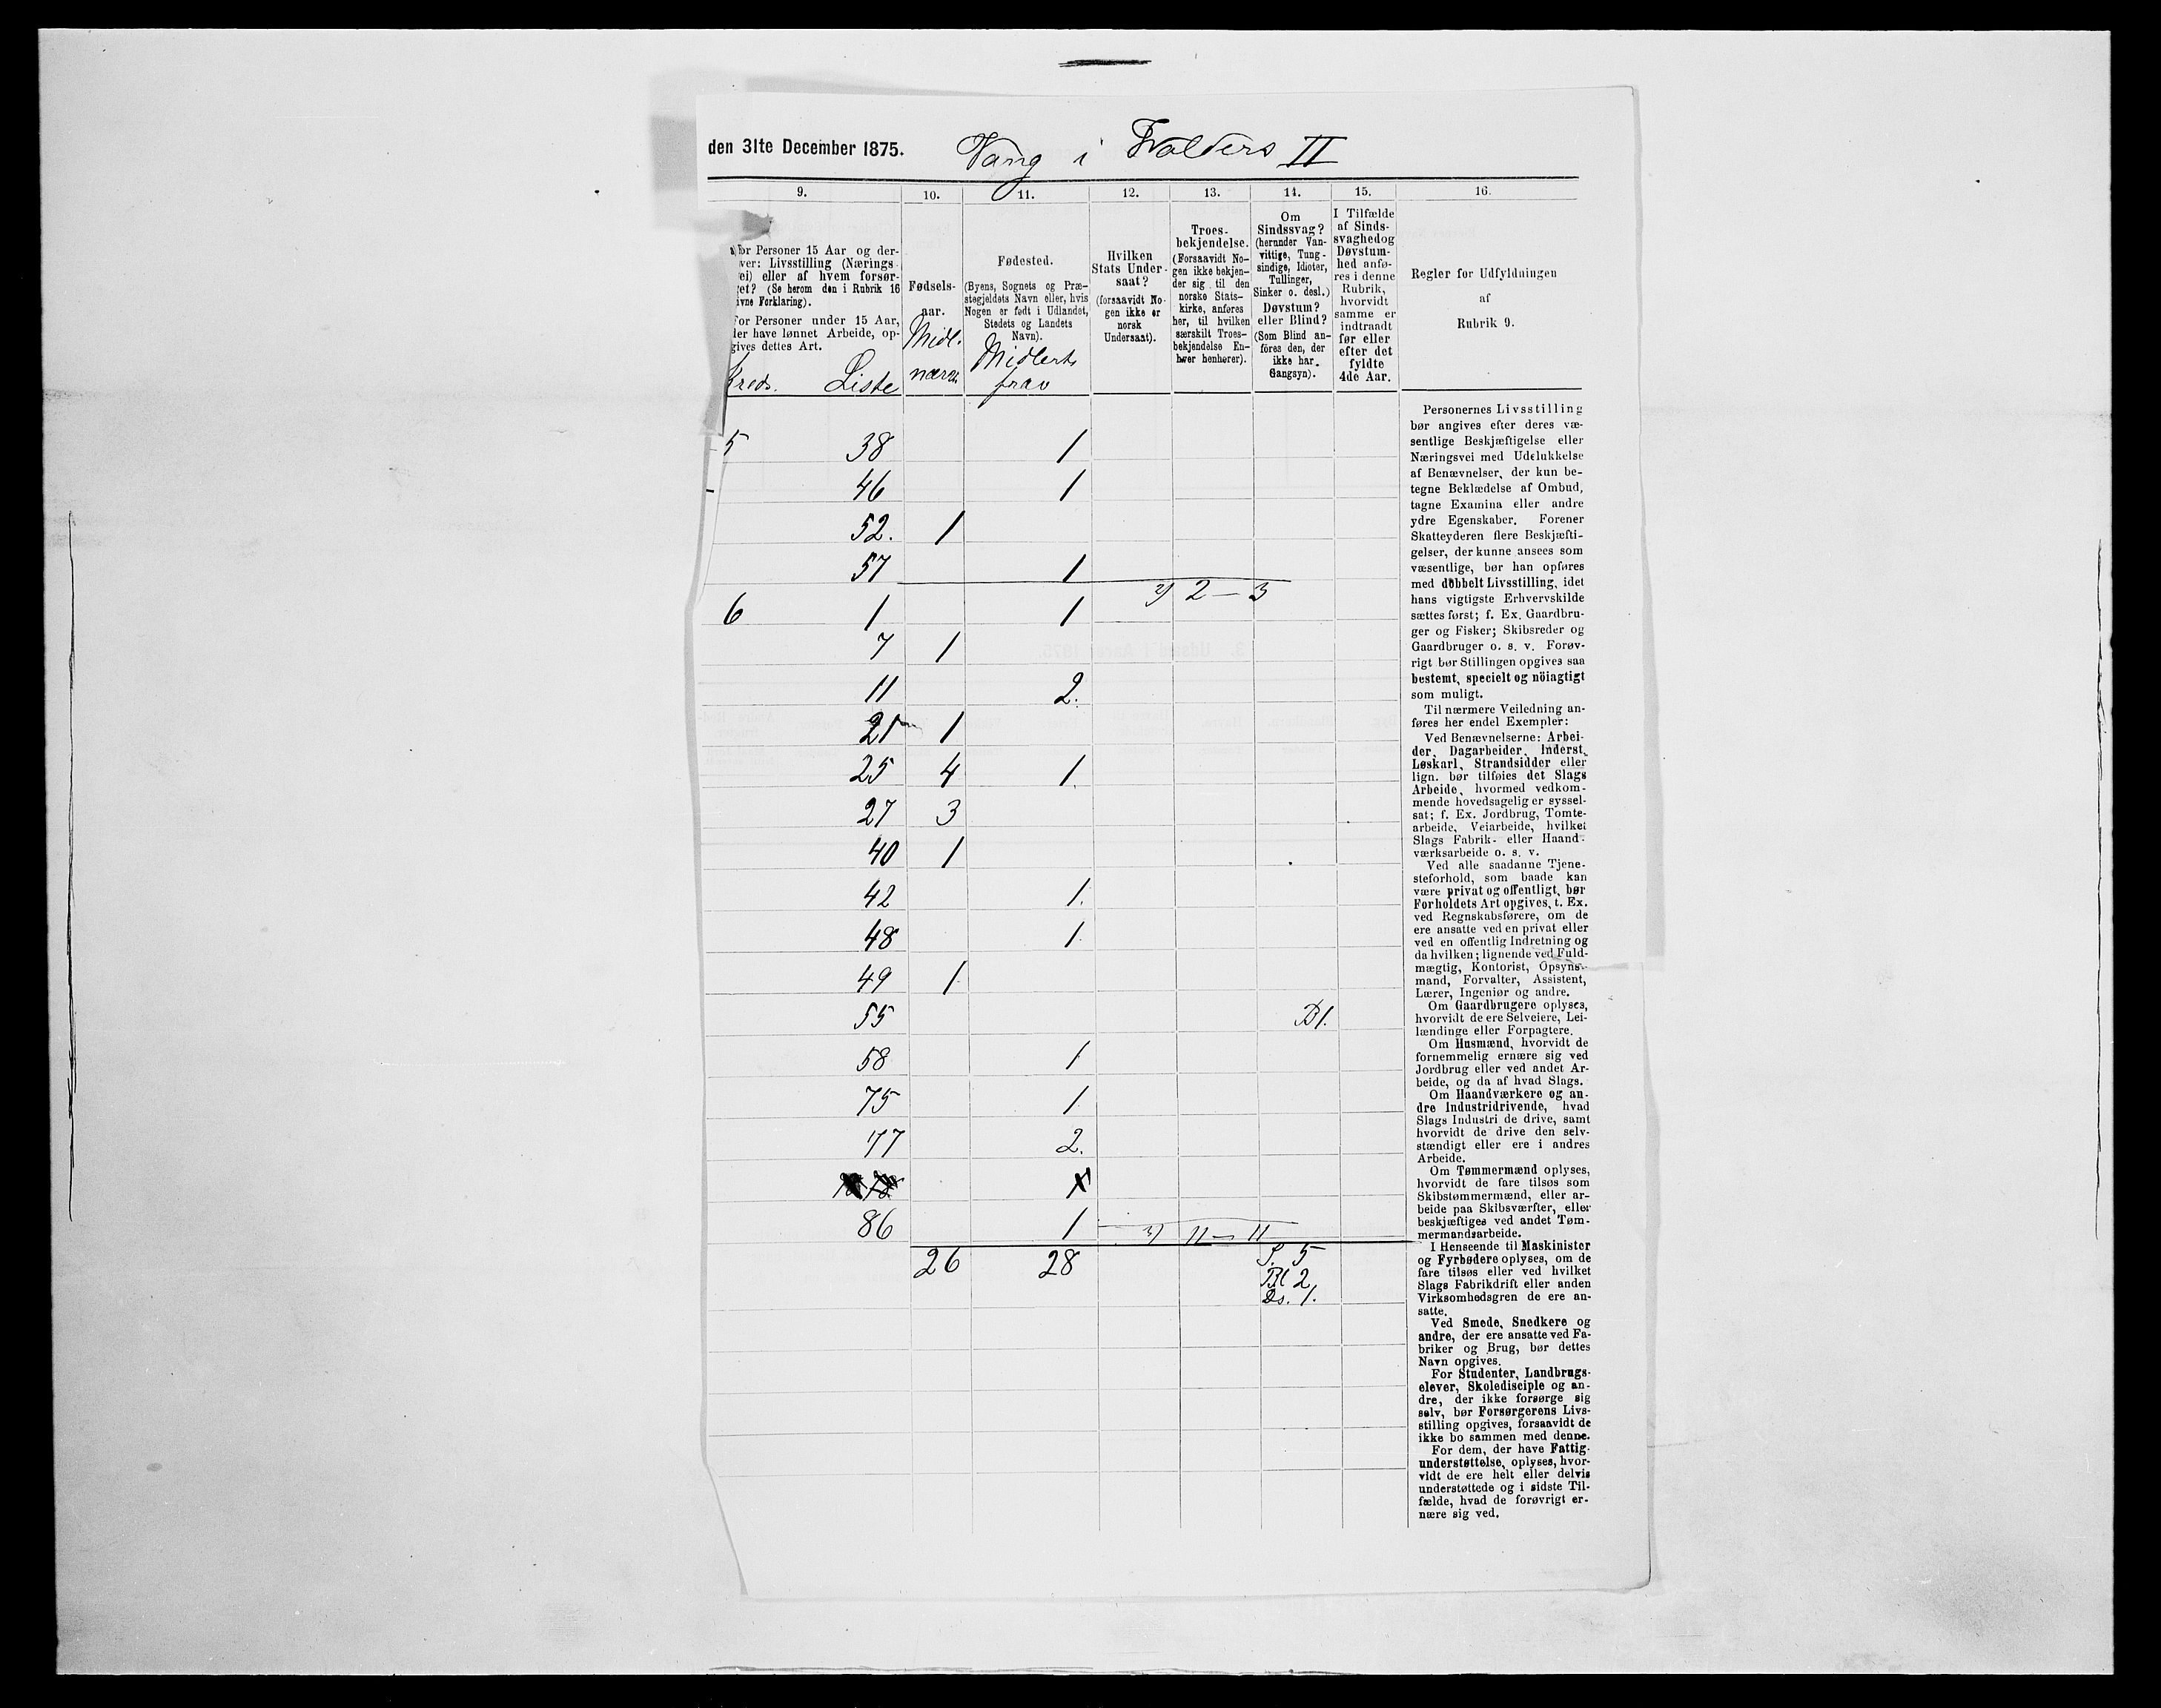 den 31te December 1875.
Vang i Valders II
9.
10.
11.
12.
13.
14.
15.
16.
For Personer 15 Aar og der-
over: Livsstilling (Nærings-
vei) eller af hvem forsør-
get? (Se herom den i Rubrik 16
givne Forklaring).
For Personer under 15 Aar,
der have lønnet Arbeide, op-
gives dettes Art.
Kreds. Liste
Fødsels-
aar.
Midl.
nærv.
Fødested.
(Byens, Sognets og Præ-
stegjeldets Navn eller, hvis
Nogen er født i Udlandet,
Stedets og Landets
Navn).
Midlert.
frav
Hvilken
Stats Under-
saat?
(forsaavidt No-
gen ikke er
norsk
Undersaat).
Troes-
bekjendelse.
(Forsaavidt No-
gen ikke bekjen-
der sig til den
norske Stats-
kirke, anføres
her, til hvilken
særskilt Troes-
bekjendelse En-
hver henhører).
Om
Sindssvag?
(herunder Van-
vittige, Tung-
sindige, Idioter,
Tullinger,
Sinker o. desl.)
Døvstum?
eller Blind?
(Som Blind an-
føres den, der
ikke har
Gangsyn).
I Tilfælde
af Sinds-
svaghed og
Døvstum-
hed anfø-
res i denne
Rubrik,
hvorvidt
samme er
indtraadt
før eller
efter det
fyldte
4de Aar.
Regler for Udfyldningen
af
Rubrik 9.
5 38 1
46 1
52. 1
57 1
2) 2 — 3
6 1 1
7 1
11 2.
21 1
25 4 1.
27 3
40 1
42 1.
48 1
49 1
55 Bl.
58 1
75 1
77 2.
86 1
2) 11 — 11
26 28 S. 5
Bl 2
Ds. 1.
Personernes Livsstilling
bør angives efter deres væ-
sentlige Beskjæftigelse eller
Næringsvei med Udelukkelse
af Benævnelser, der kun be-
tegne Beklædelse af Ombud,
tagne Examina eller andre
ydre Egenskaber. Forener
Skatteyderen flere Beskjæfti-
gelser, der kunne ansees som
væsentlige, bør han opføres
med dobbelt Livsstilling, idet
hans vigtigste Erhvervskilde
sættes først; f. Ex. Gaardbru-
ger og Fisker; Skibsreder og
Gaardbruger o. s. v. Forøv-
rigt bør Stillingen opgives saa
bestemt, specielt og nöiagtigt
som muligt.
Til nærmere Veiledning an-
føres her endel Exempler:
Ved Benævnelserne: Arbei-
der, Dagarbeider, Inderst,
Løskarl, Strandsidder eller
lign. bør tilføies det Slags
Arbeide, hvormed vedkom-
mende hovedsagelig er syssel-
sat; f. Ex. Jordbrug, Tomte-
arbeide, Veiarbeide, hvilket
Slags Fabrik- eller Haand-
værksarbeide o. s. v.
Ved alle saadanne Tjene-
steforhold, som baade kan
være privat og offentligt, bør
Forholdets Art opgives, t. Ex.
ved Regnskabsførere, om de
ere ansatte ved en privat eller
ved en offentlig Indretning og
da hvilken; lignende ved Fuld-
mægtig, Kontorist, Opsyns-
mand, Forvalter, Assistent,
Lærer, Ingeniør og andre.
Om Gaardbrugere oplyses,
hvorvidt de ere Selveiere, Lei-
lændinge eller Forpagtere.
Om Husmænd, hvorvidt de
fornemmelig ernære sig ved
Jordbrug eller ved andet Ar-
beide, og da af hvad Slags.
Om Haandværkere og an-
dre Industridrivende, hvad
Slags Industri de drive, samt
hvorvidt de drive den selv-
stændigt eller ere i andres
Arbeide.
Om Tømmermænd oplyses,
hvorvidt de fare tilsøs som
Skibstømmermænd, eller ar-
beide paa Skibsværfter, eller
beskjæftiges ved andet Tøm-
mermandsarbeide.
I Henseende til Maskinister
og Fyrbødere oplyses, om de
fare tilsøs eller ved hvilket
Slags Fabrikdrift eller anden
Virksomhedsgren de ere an-
satte.
Ved Smede, Snedkere og
andre, der ere ansatte ved Fa-
briker og Brug, bør dettes
Navn opgives.
For Studenter, Landbrugs-
elever, Skoledisciple og an-
dre, der ikke forsørge sig
selv, bør Forsørgerens Livs-
stilling opgives, forsaavidt de
ikke bo sammen med denne.
For dem, der have Fattig-
understøttelse, oplyses, hvor-
vidt de ere helt eller delvis
understøttede og i sidste Til-
fælde, hvad de forøvrigt er-
nære sig ved.